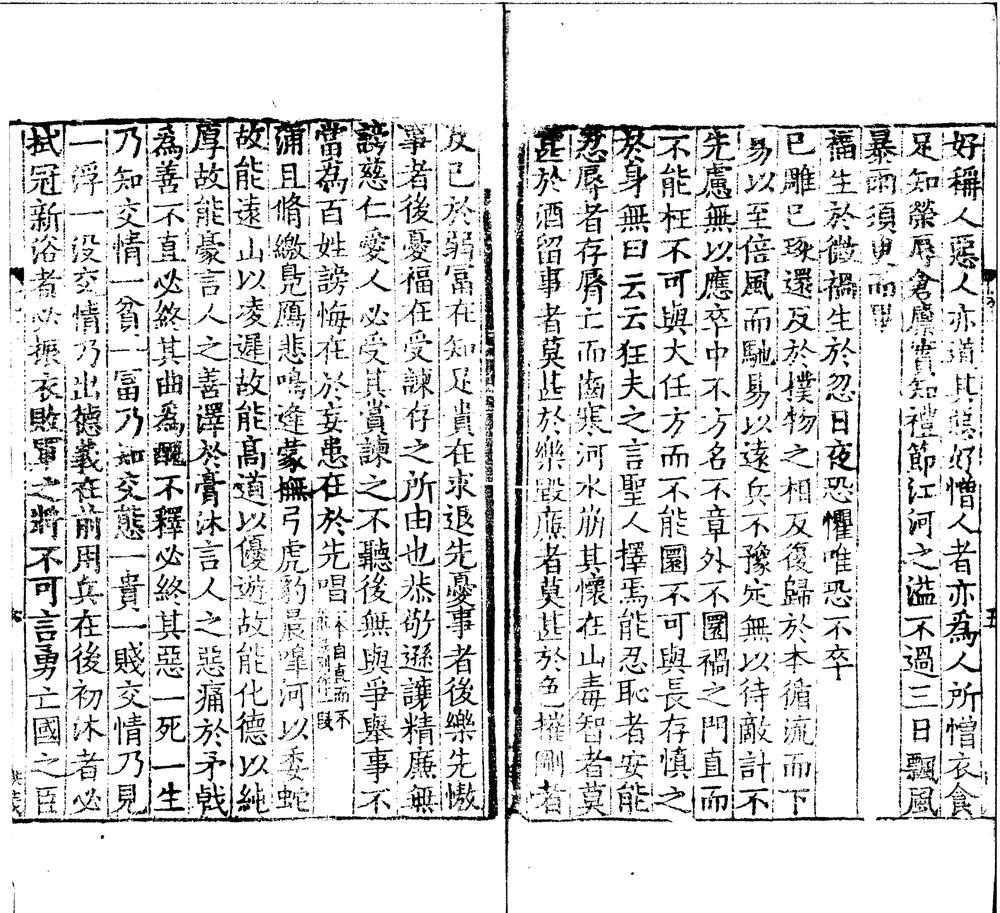 好稱人惡人亦道其惡好憎人者亦為人所憎衣食
足知榮辱倉廩實知禮節江河之溢不過三日飄風
暴雨須臾而畢
福生於微禍生於忽日夜恐懼唯恐不卒
已雕已琢還反於樸物之相反復歸於本循流而下
易以至倍風而馳易以遠兵不豫定無以待敵計不
先慮無以應卒中不方名不章外不圜禍之門直而
不能枉不可與大任方而不能圜不可與長存慎之
於身無曰云云狂夫之言聖人擇焉能忍恥者安能
忍辱者存脣亡而齒寒河水崩其懷在山毒智者莫
甚於酒留事者莫甚於樂毀廉者莫甚於色摧剛者
反己於弱富在知足貴在求退先憂事者後樂先慠
事者後憂福在受諫存之所由也恭敬遜讓精廉無
謗慈仁愛人必受其賞諫之不聽後無與爭舉事不
當為百姓謗悔在於妄患在於先唱
蒲且脩繳鳧鴈悲鳴逢蒙撫弓虎豹晨嘷河以委蛇
故能遠山以凌遲故能高道以優遊故能化德以純
厚故能豪言人之善澤於膏沐言人之惡痛於矛戟
為善不直必終其曲為醜不釋必終其惡一死一生
乃知交情一貧一富乃知交態一貴一賤交情乃見
一浮一沒交情乃出德義在前用兵在後初沐者必
拭冠新浴者必振衣敗軍之將不可言勇亡國之臣
五